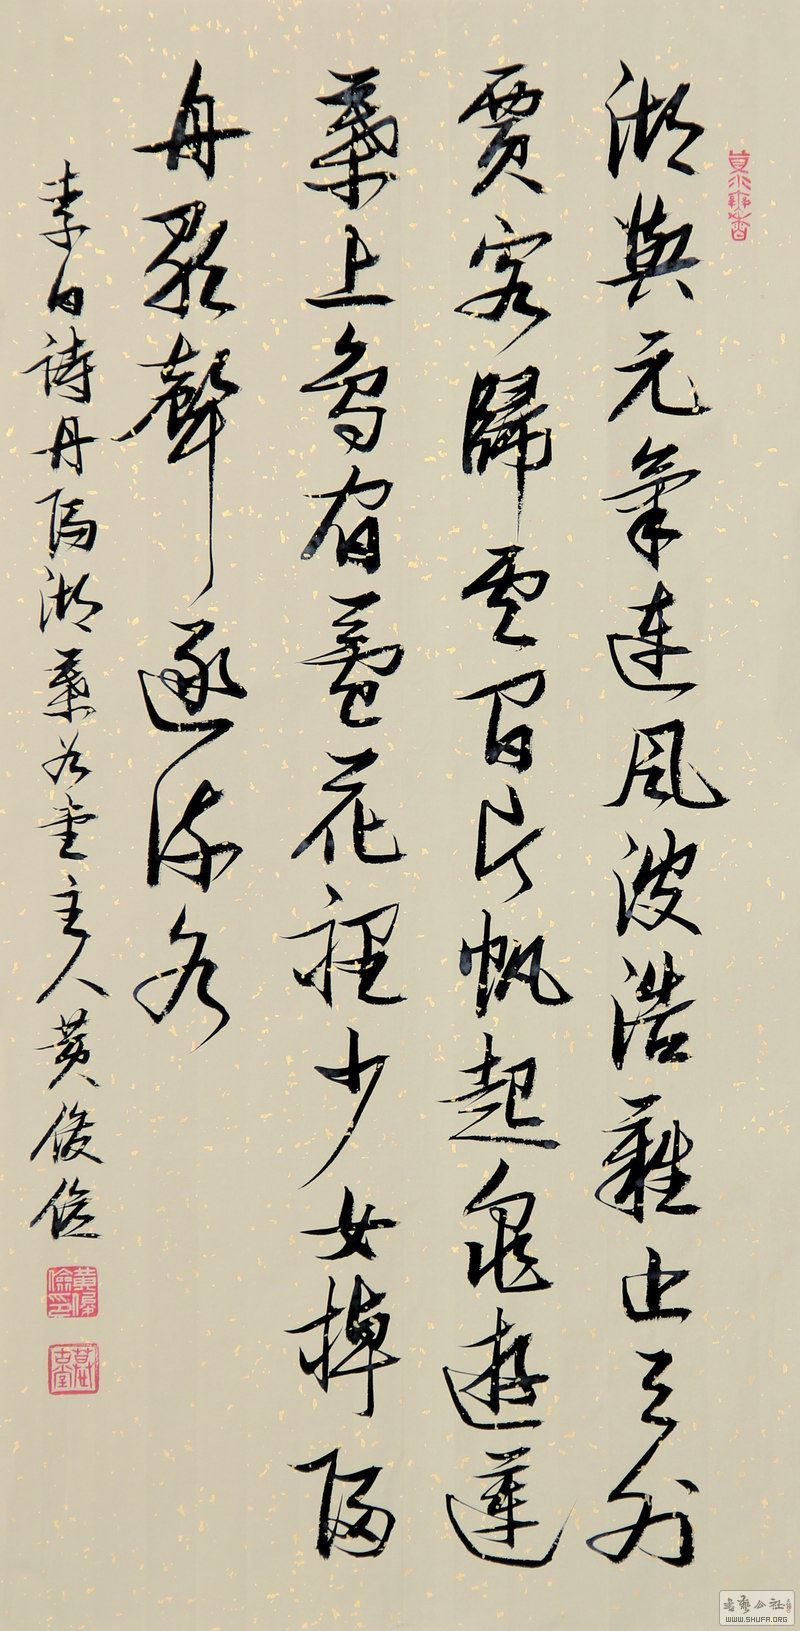 湖與元氣連風波浩難止天外
賈客歸雲間片帆起龜遊蓮
葉上鳥宿蘆花裡少女棹歸
舟歌聲逐流水
李白詩丹陽湖 堂主人黃俊儉
黃俊儉印
書藝公社
WWW.SHUFA.ORG